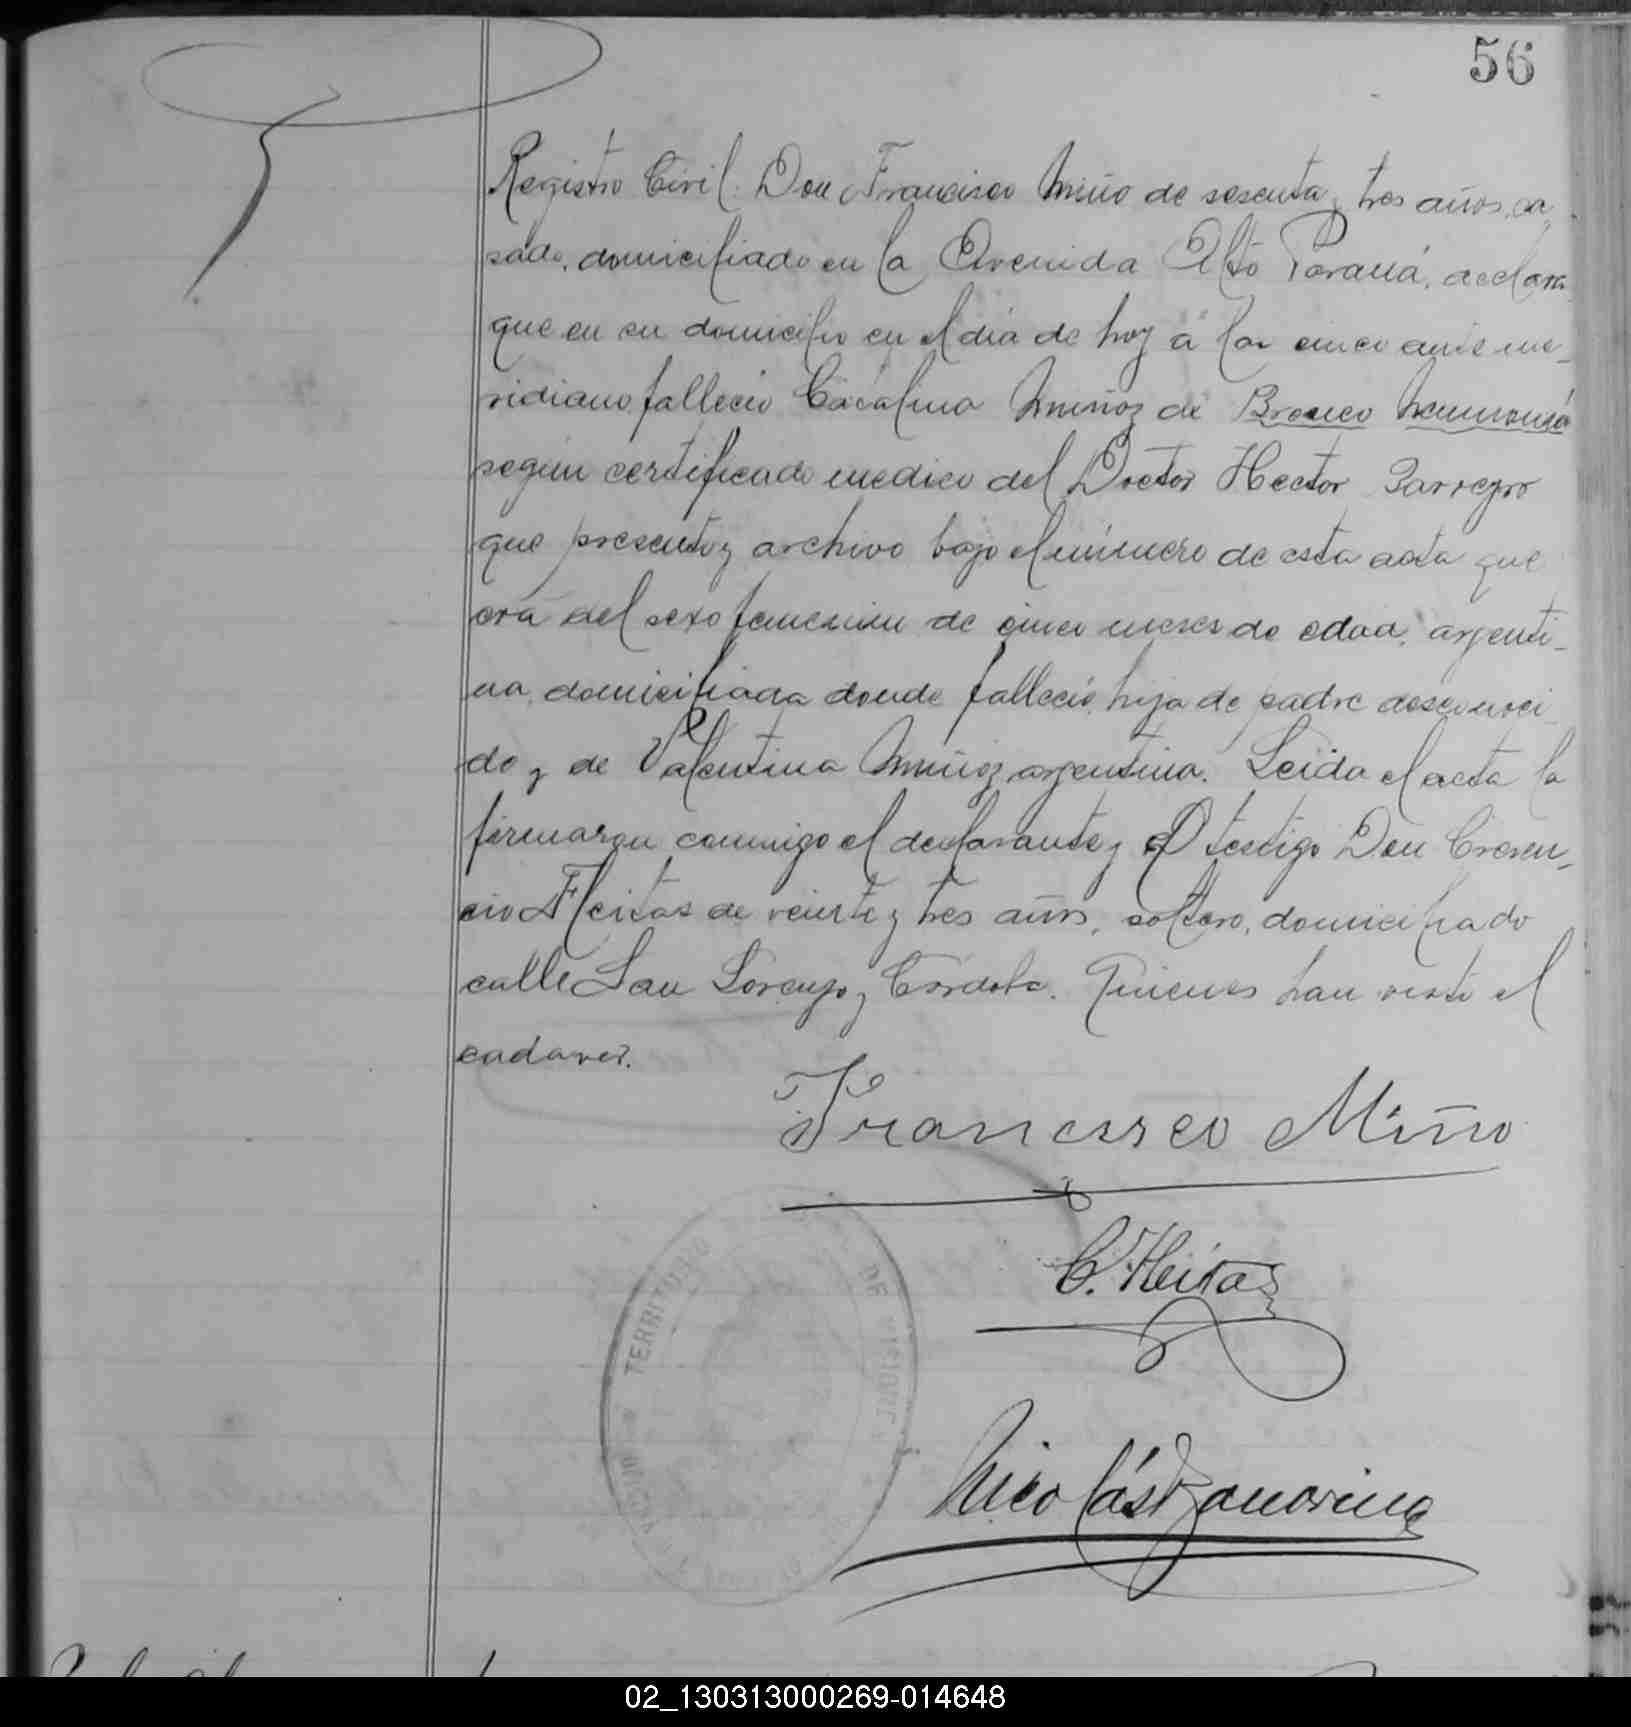 56
Registro Civil. Don Francisco Miño de sesenta y tres años, ca
sado, domiciliado en la Avenida Alto Paraná, declara
que en su domicilio en el dia de hoy á las cinco ante me-
ridiano falleció Catalina Muñoz de Bronco Neumonía
según certificado medico del Doctor Hector Barreyro
que presento y archivo bajo el número de esta acta que
era del sexo femenino de cinco meses de edad, argenti-
na, domiciliada donde falleció, hija de padre desconoci
do y de Valentina Muñoz, argentina. Leida el acta la
firmaron conmigo el declarante y el testigo Don Cresen-
cio Fleitas de veinte y tres años, soltero, domiciliado
calle San Lorenzo y Córdoba. Quienes han visto el
cadaver.
Francisco Miño
C. Fleitas
Nicolás
TERRITORIO
DE MISIONES
02_130313000269-014648